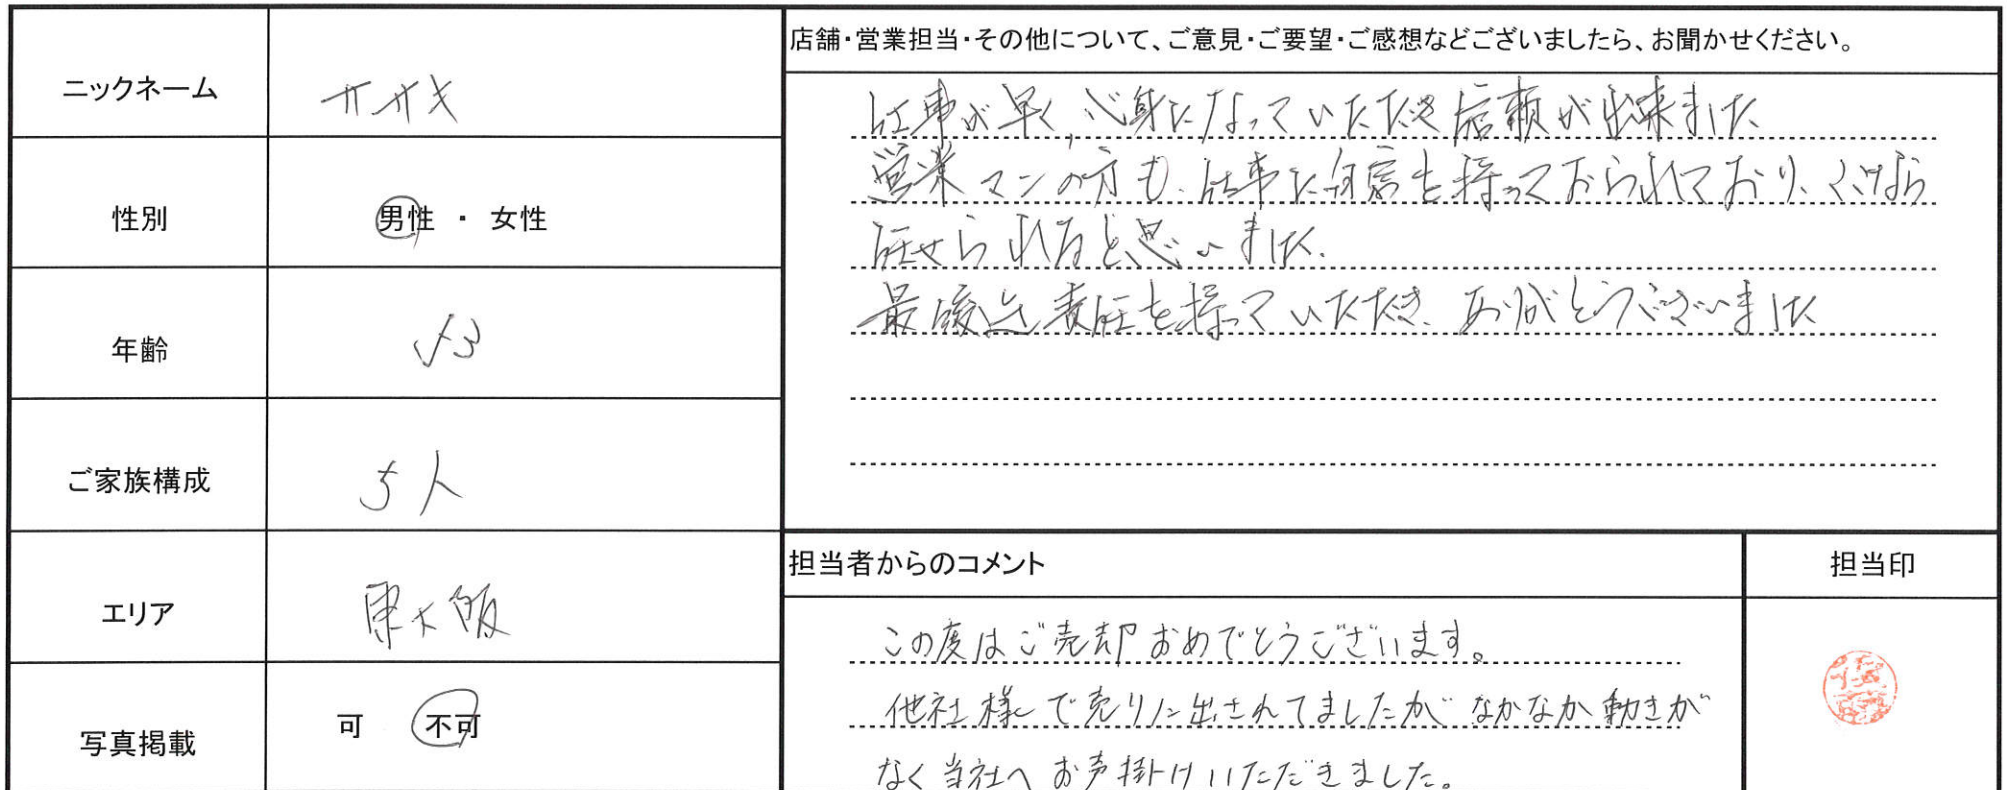 ニックネーム
ササキ
性別
男性 ・ 女性
年齢
53
ご家族構成
5人
エリア
東大阪
写真掲載
可 不可
店舗・営業担当・その他について、ご意見・ご要望・ご感想などございましたら、お聞かせください。
仕事が早く、心身になっていただき信頼が出来ました
営業マンの方も、仕事に自信を持っておられており、なら
任せられると思いました.
最後迄責任を持っていただき、ありがとうございました
担当者からのコメント
この度はご売却おめでとうございます。
他社様で売りに出されてましたが なかなか動きが
なく当社へお声掛けいただきました。
担当印